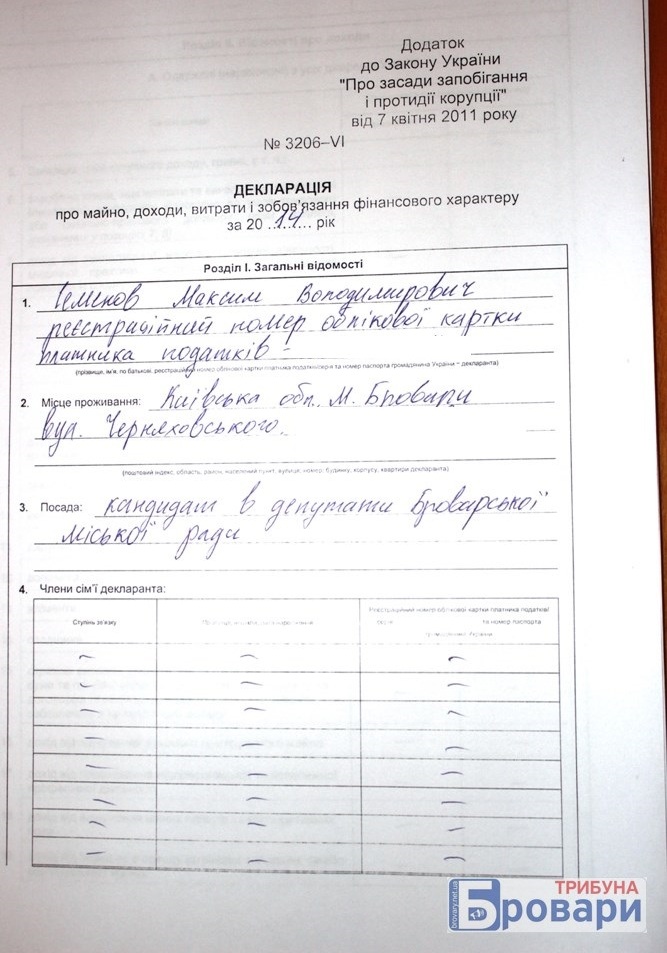 Додаток
до Закону України
"Про засади запобігання
і протидії корупції"
від 7 квітня 2011 року
№ 3206–VI
ДЕКЛАРАЦІЯ
про майно, доходи, витрати і зобов'язання фінансового характеру
за 20 ..14.... рік
Розділ І. Загальні відомості
1. Семенов Максим Володимирович
реєстраційний номер облікової картки
платника податків –
(прізвище, ім'я, по батькові, реєстраційний номер облікової картки платника податків/серія та номер паспорта громадянина України – декларанта)
2. Місце проживання: Київська обл. м. Бровари
вул. Черняховського.
(поштовий індекс, область, район, населений пункт, вулиця, номер: будинку, корпусу, квартири декларанта)
3. Посада: кандидат в депутати Броварської
міської ради
4. Члени сім'ї декларанта:
Ступінь зв'язку
Реєстраційний номер облікової картки платника податків/
серія та номер паспорта
громадянина України
brovary.net.ua
ТРИБУНА
Бровари